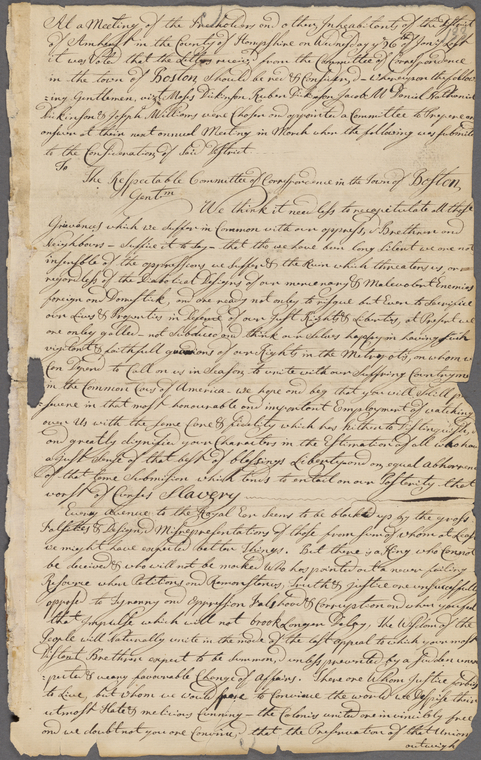 At a Meeting of the Freeholders and other Inhabitants of the District
of Amherst in the County of Hampshire on Wednesday ye 26th of Jany last
it was voted that the Letter receivd from the Committee of Correspondence
in the town of Boston should be read & Considered – Whereupon the follow
=ing Gentlemen, vizt Moses Dickinson Reuben Dickinson Jacob Mc Daniel Nathaniel
Dickinson & Joseph Williams were Chosen and appointed a Committee to Prepare an
answer at their next annual Meeting in March when the following was submitted
to the Consideration of said District
To
The Respectable Committee of Correspondence in the Town of Boston,
Gentm
We think it need less to recapetulate all those
Grievances which we suffer in Common with our oppressed Brethren and
Neighbours – suffice it to say – that tho we have been long silent we are not
insensible of the oppressions we suffer & the Ruin which threatens us, or
regardless of the Diabolical Designs of our mercenary & Malevolent Enemies
foreign and Domestick, and are ready not only to risque but Even to Sacrifice
our Lives & Properties in Defence of our Just Rights & Liberties, at Present we
are only galled – not subdued and think our selves happy in having such
vigilent & faithfull guardians of our Rights in the Metropolis, on whom we
Can Depend to Call on us in Season to unite with our suffering Countrymen
in the Common Cause of America – we hope and beg that you will still per
=severe in that most honourable and important Employment of watching
over Us with the same Care & fidelity which has hitherto Distinguished
and greatly dignifyed your Characters in the Estimation of all who have
a just Sense of that best of blessings Liberty and an equal abhorrence
of that tame Submission which tends to entail on our Posterity that
worst of Curses Slavery
Every avenue to the Royal Ear seems to be blocked up by the gross
Falsities & Designed Misrepresentations of those from sum of whom at Least
we might have expected better things. But there is a King who Cannot
be deceived & who will not be mocked who has pointed out a never failing
Resource when Petitions and Remonstrances, Truth & Justice are unsuccessfully
oppos'd to Tyranny and Oppression Falshood & Corruption and when you feel
that Impulse which will not brook Longer Delay, the Wisdom of the
People will naturally unite in the mode of the last appeal to which your most
Distant Brethren expect to be Summoned unless prevented by a Sudden unex
=pected & very favourable Change of affairs. There are Whom Justice forbids
to Live, but whom we would spare to Convince the world we Despise their
utmost Hate & malicious Cunning – the Colonies united are invincibly free
and we doubt not you are Convinced that the Preservation of that Union
outweigh